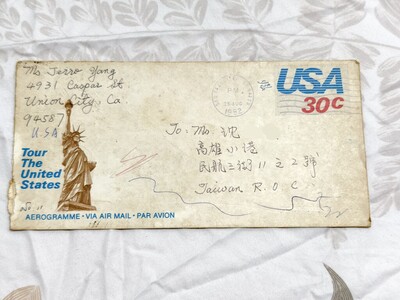 Ms Jerro Yang
4931 Caspar St.
Union City, Ca
94587
U.S.A
USA
30c
PM
1982
To: Ms 沈
高雄小港
民航三街11之2號
Taiwan R.O.C
Tour
The
United
States
AEROGRAMME • VIA AIR MAIL • PAR AVION